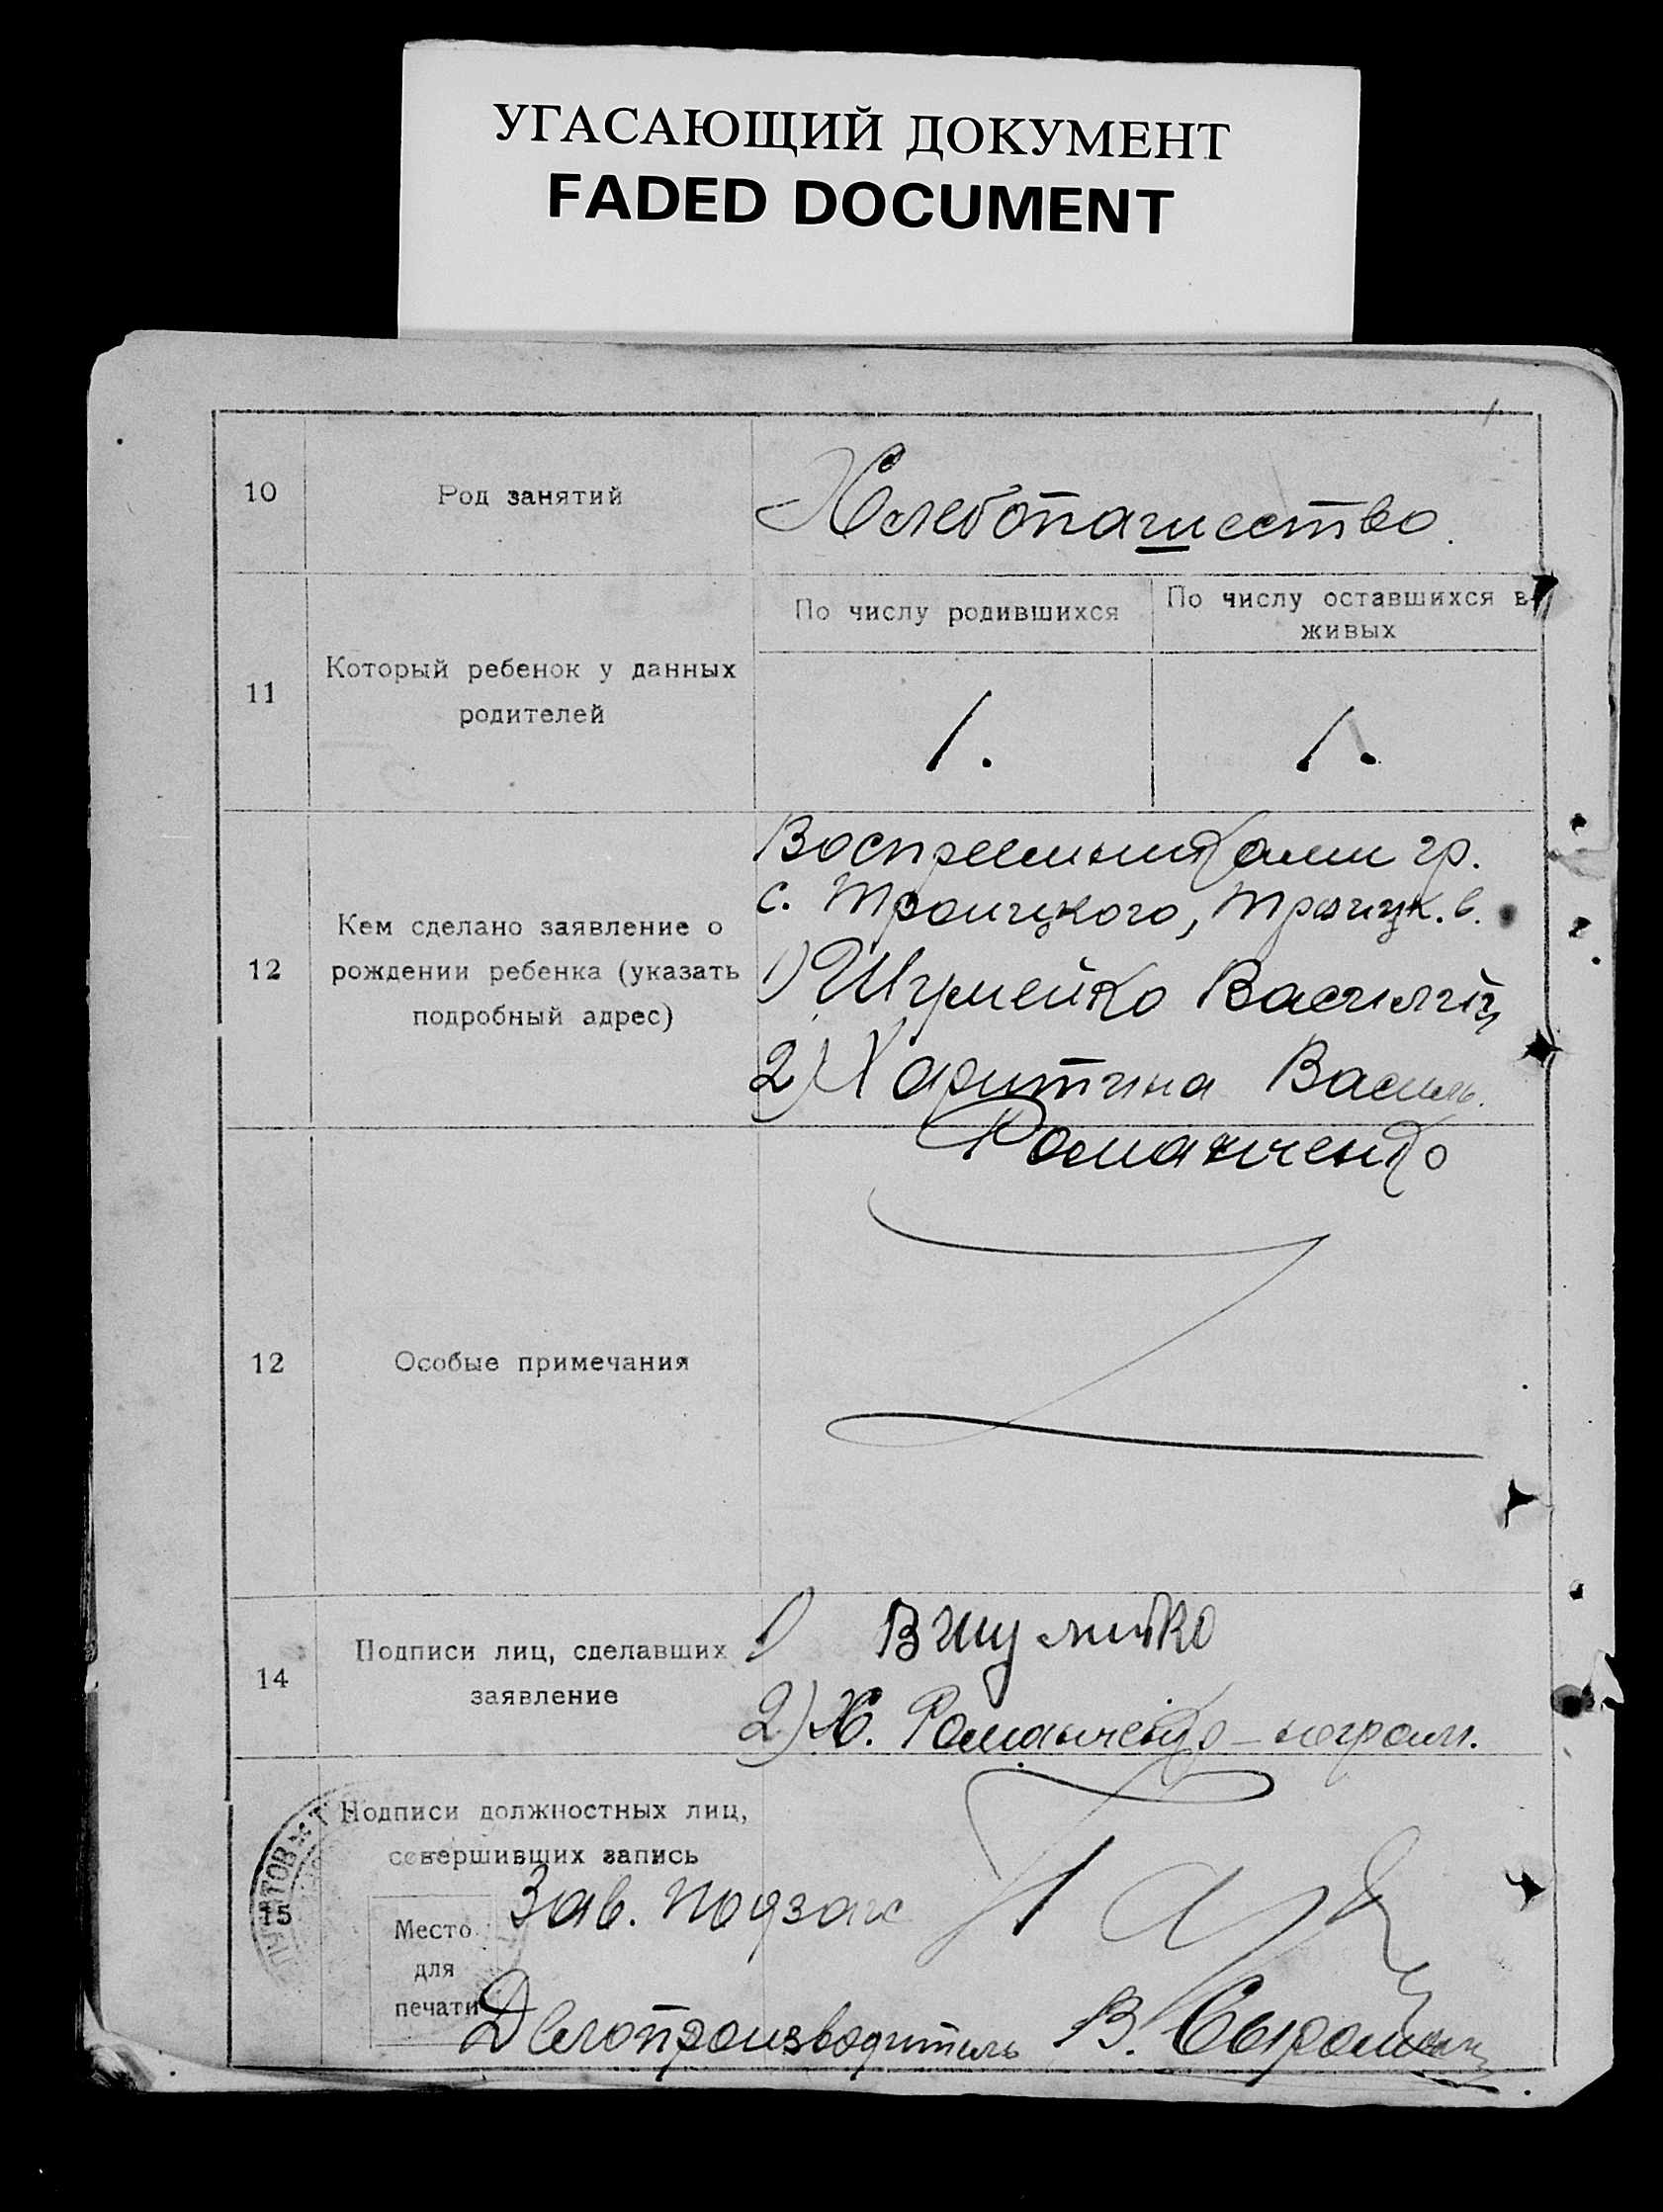 УГАСАЮЩИЙ ДОКУМЕНТ
FADED DOCUMENT
10
Род занятий
Хлебопашество.
11
Который ребенок у данных
родителей
По числу родившихся
По числу оставшихся в
живых
1.
1.
12
Кем сделано заявление о
рождении ребенка (указать
подробный адрес)
Восприемниками гр.
с. Троицкого, Троицк. в.
1) Шумейко Василий,
2) Харитина Василь.
Романченко
12
Особые примечания
14
Подписи лиц, сделавших
заявление
1) В Шумейко
2) Х. Романченко – неграм.
15
Подписи должностных лиц,
совершивших запись
Зав. Подзагс
Место
для
печати
Делопроизводитель В.